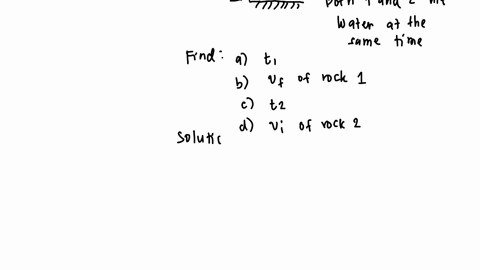 both 1 and 2 hit
water at the
same time
Find: a) t₁
b) vf of rock 1
c) t2
d) vi of rock 2
Solutic